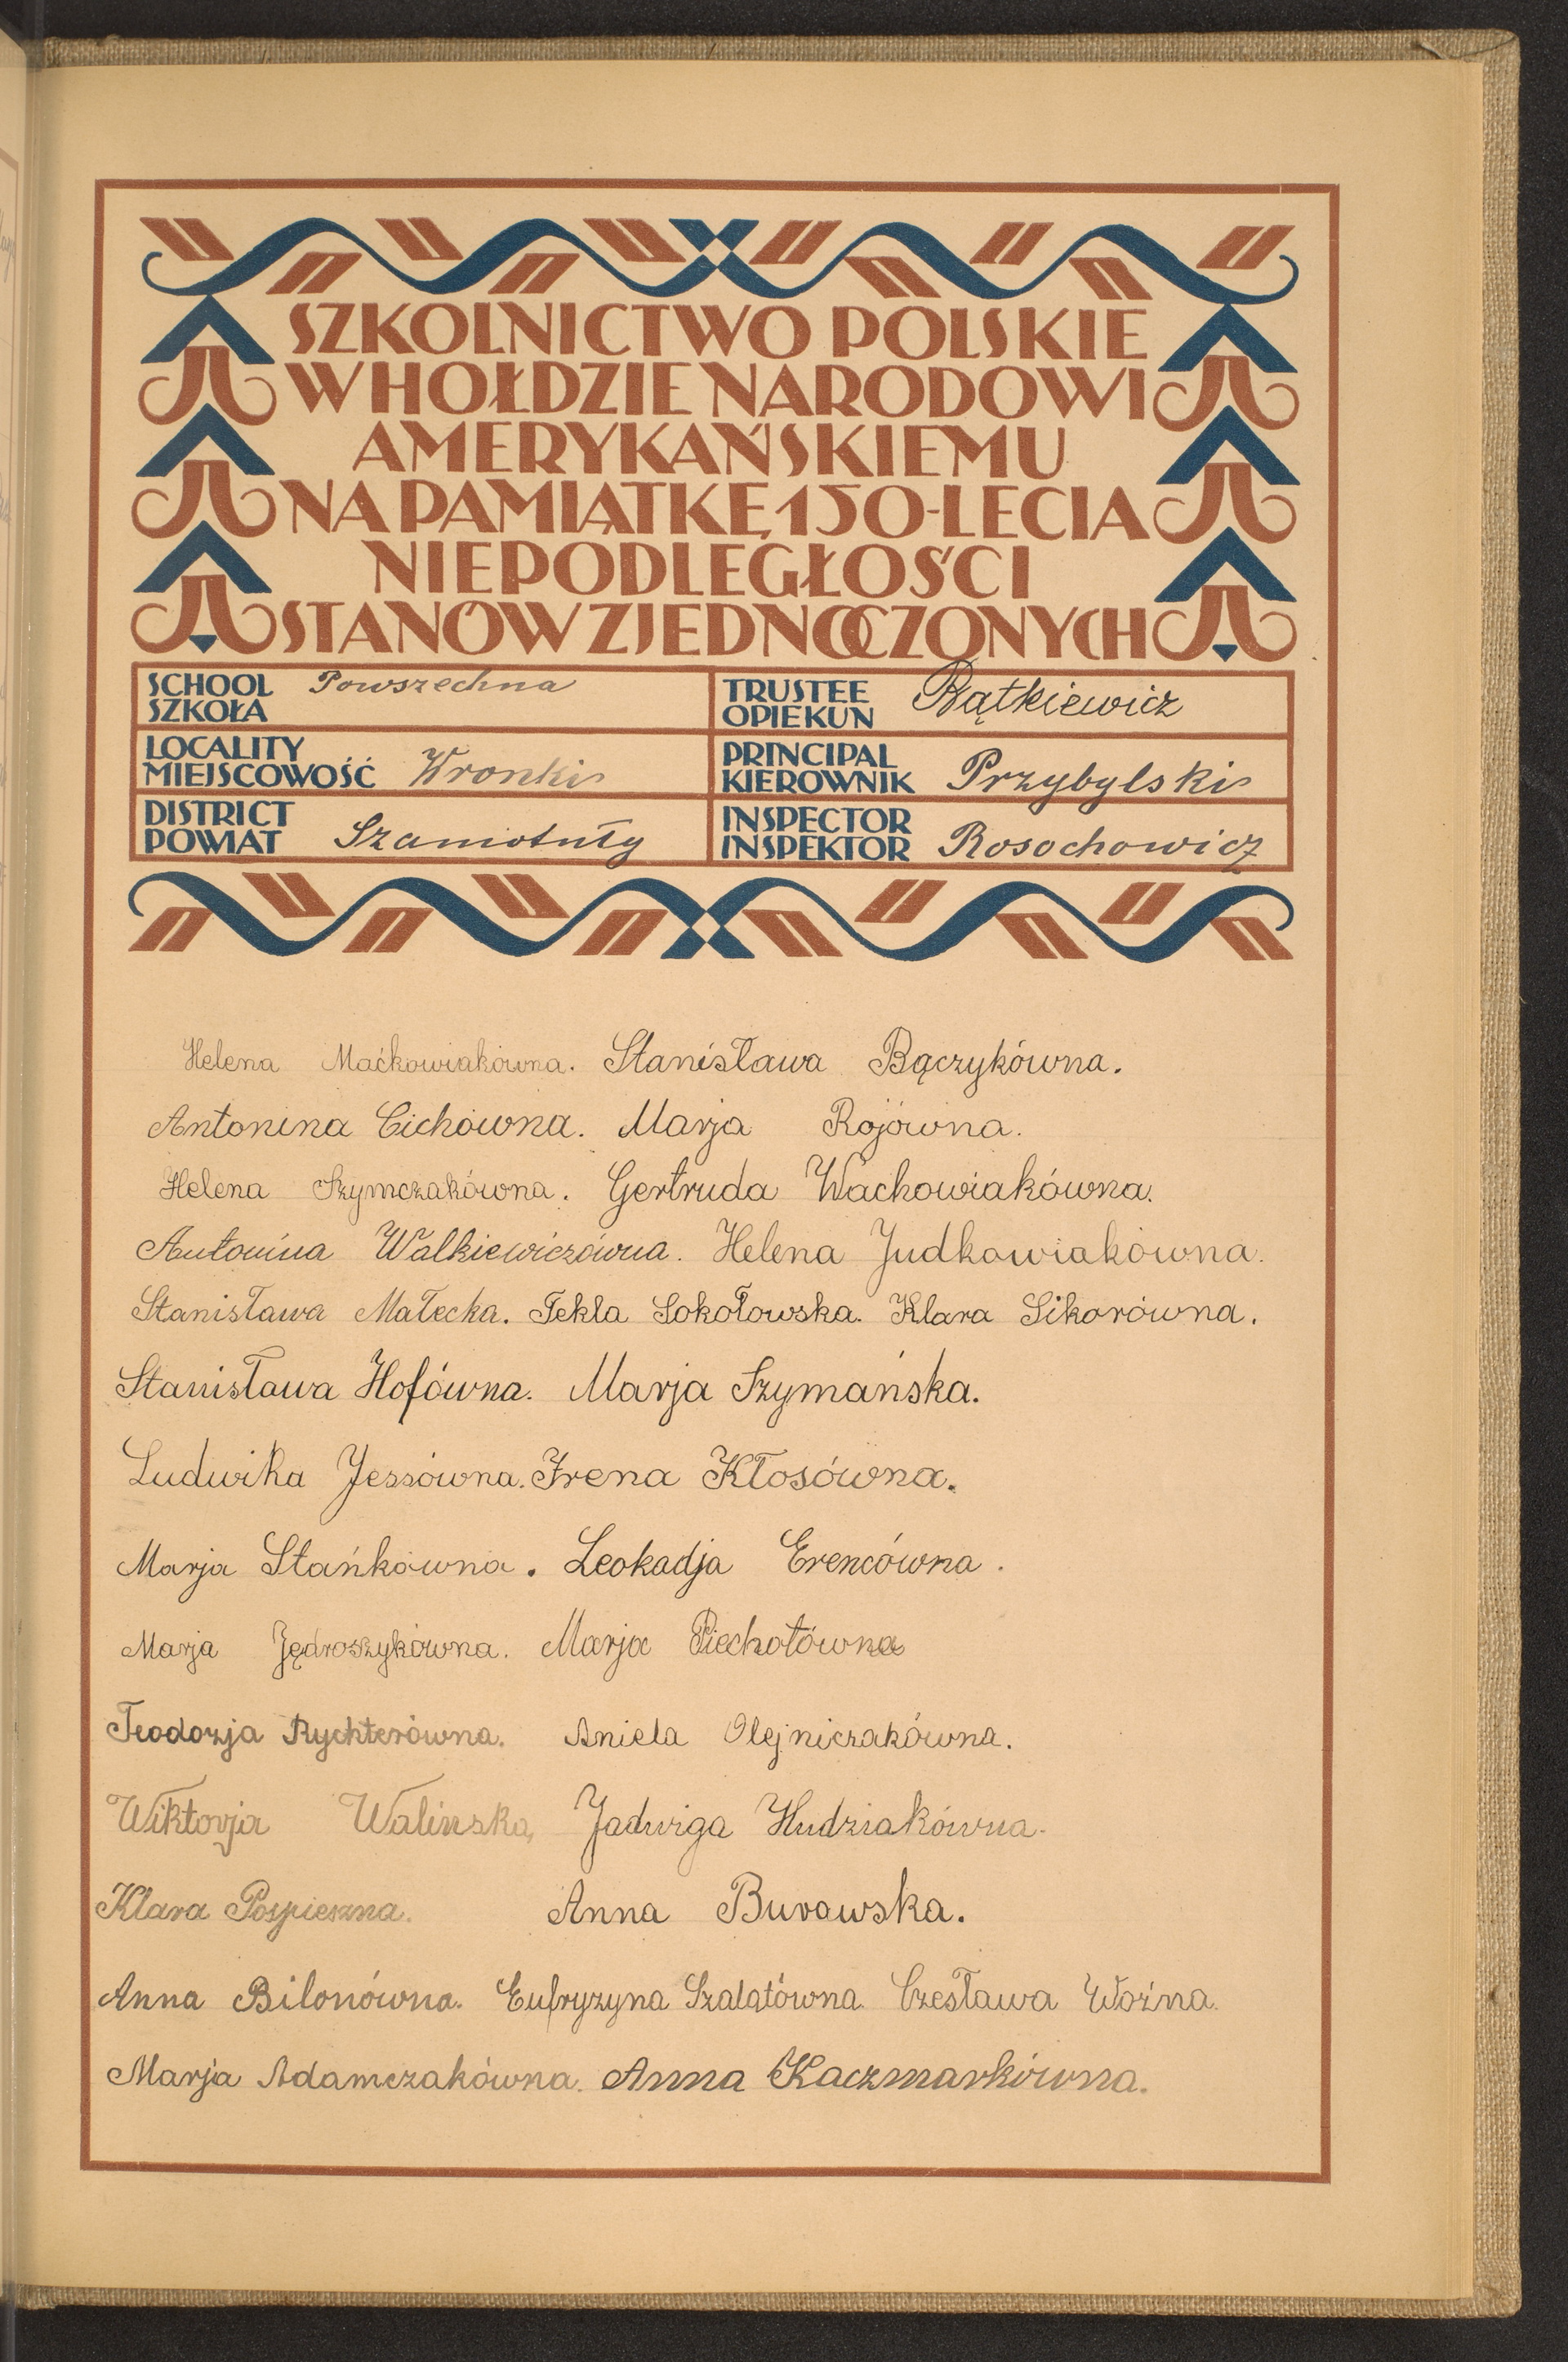 SZKOLNICTWO POLSKIE
W HOŁDZIE NARODOWI
AMERYKAŃSKIEMU
NA PAMIĄTKĘ 150-LECIA
NIEPODLEGŁOŚCI
STANÓW ZJEDNOCZONYCH
SCHOOL SZKOŁA Powszechna
TRUSTEE OPIEKUN Bątkiewicz
LOCALITY MIEJSCOWOŚĆ Wronki
PRINCIPAL KIEROWNIK Przybylski
DISTRICT POWIAT Szamotuły
INSPECTOR INSPEKTOR Rosochowicz
Helena Maćkowiakówna. Stanisława Bączykówna.
Antonina Cichówna. Marja Rojówna.
Helena Szymczakówna. Gertruda Wachowiakówna.
Antonina Walkiewiczówna. Helena Judkowiakówna.
Stanisława Małecka. Tekla Sokołowska. Klara Sikorówna.
Stanisława Hofówna. Marja Szymańska.
Ludwika Jessówna. Irena Kłosówna.
Marja Stańkówna. Leokadja Erencówna.
Marja Jędroszykówna. Marja Piechotówna
Teodozja Rychterówna. Aniela Olejniczakówna.
Wiktorja Walinska, Jadwiga Hudziakówna.
Klara Pospieszna. Anna Burowska.
Anna Bilonówna. Eufryzyna Szalatówna. Czesława Woźna.
Marja Adamczakówna. Anna Kaczmarkówna.